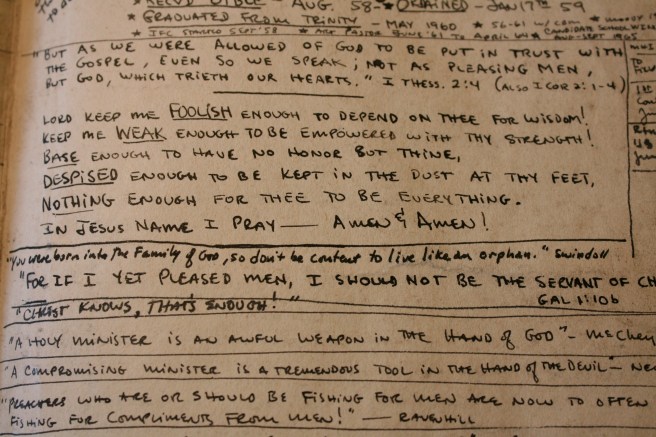 ★ RECVD BIBLE - AUG. 58 - ★ ORDAINED - JAN 17TH 59
★ GRADUATED FROM TRINITY - MAY 1960 ★ 56-61 w/
★ IFC STARTED SEPT '58 ★ PASTOR JUNE '61 TO APRIL CANDIDATE SCHOOL
"BUT AS WE WERE ALLOWED OF GOD TO BE PUT IN TRUST WITH
THE GOSPEL, EVEN SO WE SPEAK; NOT AS PLEASING MEN,
BUT GOD, WHICH TRIETH OUR HEARTS." I THESS. 2:4 (ALSO I COR 2:1-4)
LORD KEEP ME FOOLISH ENOUGH TO DEPEND ON THEE FOR WISDOM!
KEEP ME WEAK ENOUGH TO BE EMPOWERED WITH THY STRENGTH!
BASE ENOUGH TO HAVE NO HONOR BUT THINE,
DESPISED ENOUGH TO BE KEPT IN THE DUST AT THY FEET,
NOTHING ENOUGH FOR THEE TO BE EVERYTHING.
IN JESUS NAME I PRAY — AMEN & AMEN!
"You were born into the Family of God, so don't be content to live like an orphan." Swindoll
"FOR IF I YET PLEASED MEN, I SHOULD NOT BE THE SERVANT OF CH
GAL 1:10b
"CHRIST KNOWS, THAT'S ENOUGH!"
"A HOLY MINISTER IS AN AWFUL WEAPON IN THE HAND of GOD" - McChey
"A COMPROMISING MINISTER IS A TREMENDOUS TOOL IN THE HAND OF THE DEVIL" -
"PREACHERS WHO ARE OR SHOULD BE FISHING FOR MEN ARE NOW TO OFTEN
FISHING FOR COMPLIMENTS FROM MEN!" — RAVENHILL